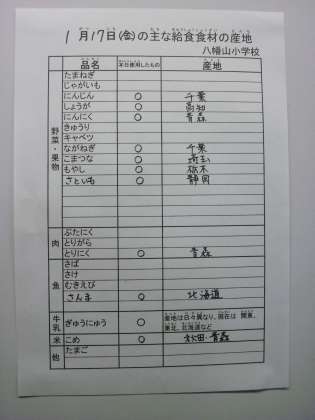 1月17日(金)の主な給食食材の産地
八幡山小学校
品名 本日使用したもの 産地
野菜・果物
たまねぎ
じゃがいも
にんじん ○ 千葉
しょうが ○ 高知
にんにく ○ 青森
きゅうり
キャベツ
ながねぎ ○ 千葉
こまつな ○ 埼玉
もやし ○ 栃木
さといも ○ 静岡
肉
ぶたにく
とりがら
とりにく ○ 青森
魚
さば
さけ
むきえび
さんま ○ 北海道
牛乳 ぎゅうにゅう ○ 産地は日々異なり、現在は 関東、
東北、北海道など
米 こめ ○ 秋田・青森
他 たまご